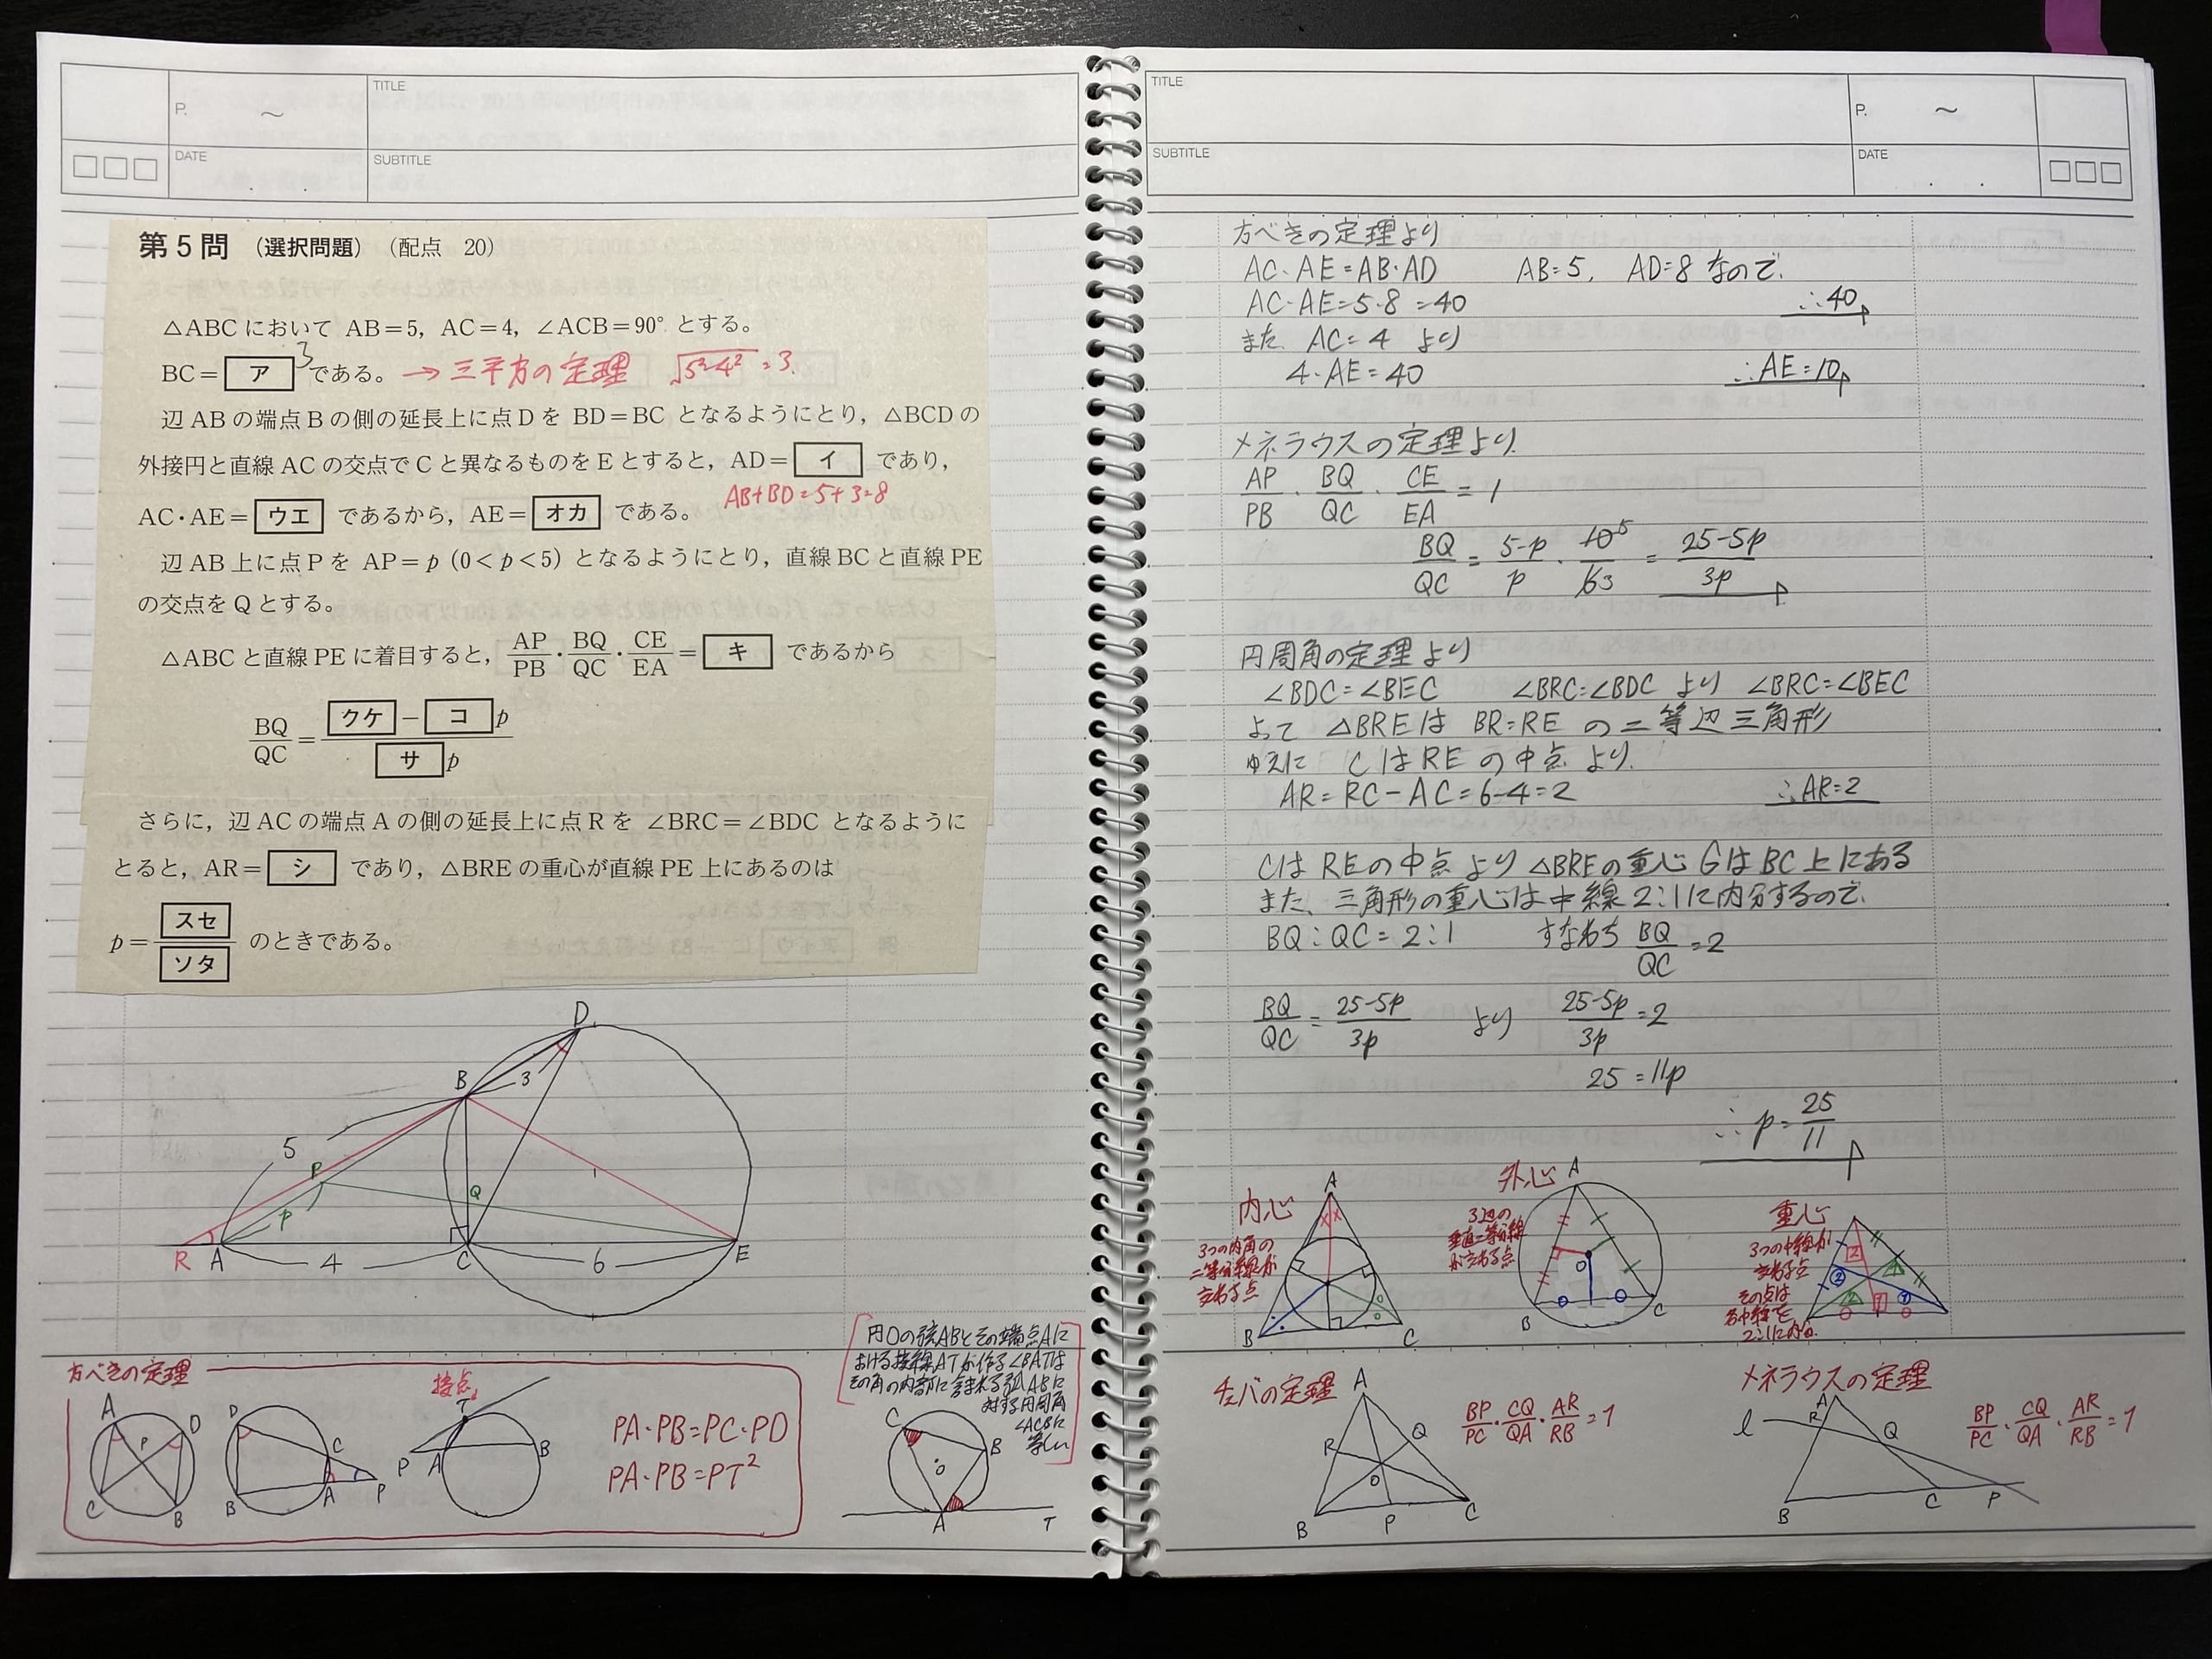 P. ~
TITLE
DATE . .
SUBTITLE
第5問 (選択問題) (配点 20)
△ABC において AB=5, AC=4, ∠ACB=90° とする。
BC= ア 3 である。 → 三平方の定理 √5²-4² = 3.
辺 AB の端点 B の側の延長上に点 D を BD=BC となるようにとり, △BCD の
外接円と直線 AC の交点で C と異なるものを E とすると, AD= イ であり,
AB+BD=5+3=8
AC・AE= ウエ であるから, AE= オカ である。
辺 AB 上に点 P を AP=p (0<p<5) となるようにとり, 直線 BC と直線 PE
の交点を Q とする。
△ABC と直線 PE に着目すると, AP/PB・BQ/QC・CE/EA= キ であるから
BQ/QC= (クケ - コ p)/(サ p)
さらに, 辺 AC の端点 A の側の延長上に点 R を ∠BRC=∠BDC となるように
とると, AR= シ であり, △BRE の重心が直線 PE 上にあるのは
p= スセ/ソタ のときである。
D
B 3
5
P
Q
p
R A 4 C 6 E
方べきの定理
A D P C B
D C B A P
接点 T P A B
PA・PB=PC・PD
PA・PB=PT²
円Oの弦ABとその端点Aに
おける接線ATが作る∠BATは
その角の内部に含まれる弧ABに
対する円周角
∠ACBに
等しい
C B O A T
TITLE
P. ~
SUBTITLE
DATE . .
方べきの定理より
AC・AE=AB・AD AB=5, AD=8 なので,
AC・AE=5・8=40 ∴40
また AC=4 より
4・AE=40 ∴AE=10
メネラウスの定理より
AP/PB・BQ/QC・CE/EA=1
BQ/QC = 5-p/p・10 5/6 3 = 25-5p/3p
円周角の定理より
∠BDC=∠BEC ∠BRC=∠BDC より ∠BRC=∠BEC
よって △BREは BR=RE の二等辺三角形
ゆえに CはREの中点より
AR=RC-AC=6-4=2 ∴AR=2
CはREの中点より △BREの重心GはBC上にある
また、三角形の重心は中線2:1に内分するので、
BQ:QC=2:1 すなわち BQ/QC=2
BQ/QC=25-5p/3p より 25-5p/3p=2
25=11p
∴p=25/11
内心
3つの内角の
二等分線が
交わる点
A B C
外心
3辺の
垂直二等分線
が交わる点
A O B C
重心
3つの中線が
交わる点
その点は
各中線を
2:1に内分
2 1 ② ① 2 1
チェバの定理
A R Q O B P C
BP/PC・CQ/QA・AR/RB=1
メネラウスの定理
l A R Q B C P
BP/PC・CQ/QA・AR/RB=1